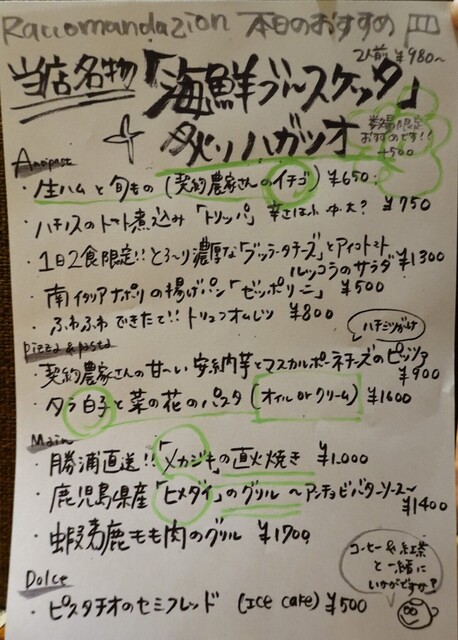 Raccomandazion 本日のおすすめ 皿
2人前 ¥980~
当店名物「海鮮ブルスケッタ」
+ 炙りハガツオ
数量限定
おすすめです!!
+500
Antipast
・生ハムと旬もの(契約農家さんのイチゴ) ¥650
・ハチノスのトマト煮込み「トリッパ」 辛さは小中大? ¥750
・1日2食限定!! とろ~り濃厚な「ブッラータチーズ」とアイコトマト
ルッコラのサラダ ¥1300
・南イタリアナポリの揚げパン「ゼッポリーニ」 ¥500
・ふわふわできたて!! トリュフオムレツ ¥800
Pizza & pasta
ハチミツがけ
・契約農家さんの甘~い安納芋とマスカルポーネチーズのピッツァ
¥900
・タラ白子と菜の花のパスタ (オイル or クリーム) ¥1600
Main
・勝浦直送!!「メカジキ」の直火焼き ¥1.000
・鹿児島県産「ヒメダイ」のグリル ~アンチョビバターソース~
¥1400
・蝦夷鹿もも肉のグリル ¥1700
コーヒー&紅茶
と一緒に
いかがですか?
Dolce
・ピスタチオのセミフレッド (Ice cake) ¥500